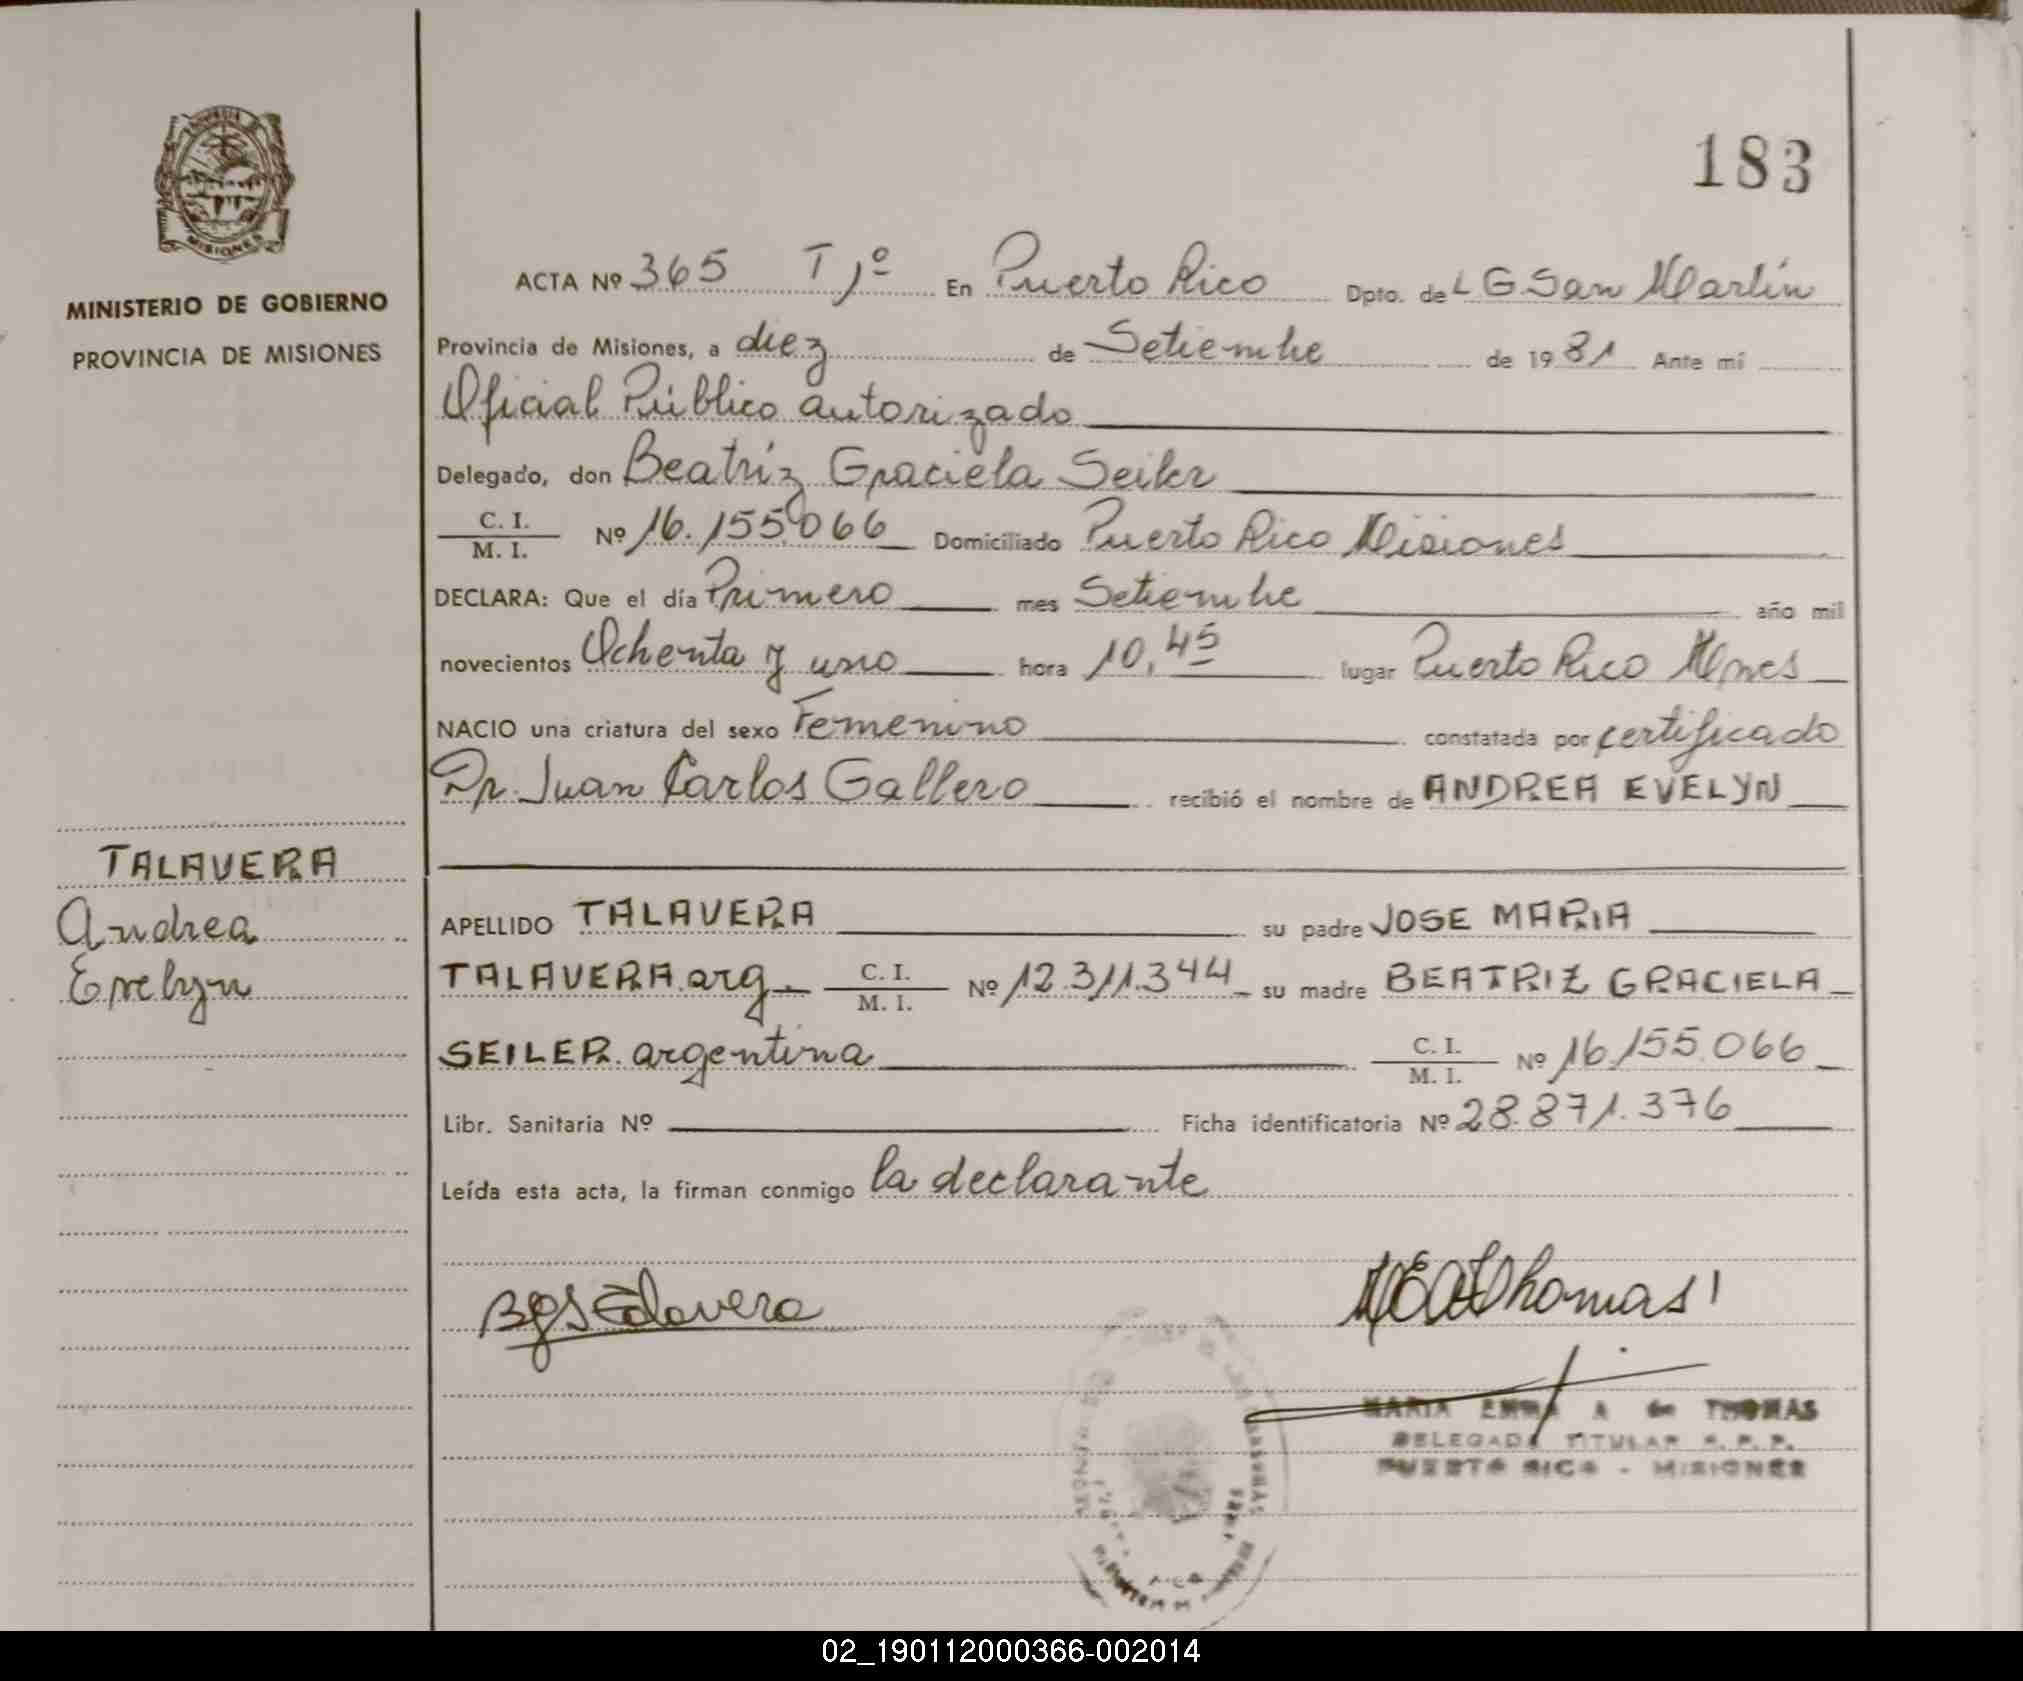 183
MISIONES
MINISTERIO DE GOBIERNO
PROVINCIA DE MISIONES
ACTA Nº 365 T 1º En Puerto Rico Dpto. de L G San Martín
Provincia de Misiones, a diez de Setiembre de 1981 Ante mí
Oficial Público autorizado
Delegado, don Beatriz Graciela Seiler
C. I. / M. I. Nº 16.155.066 Domiciliado Puerto Rico Misiones
DECLARA: Que el día Primero mes Setiembre año mil
novecientos Ochenta y uno hora 10,45 lugar Puerto Rico Mnes
NACIO una criatura del sexo Femenino constatada por certificado
Dr. Juan Carlos Gallero recibió el nombre de ANDREA EVELYN
TALAVERA
Andrea
Evelyn
APELLIDO TALAVERA su padre JOSE MARIA
TALAVERA arg C. I. / M. I. Nº 12.311.344 su madre BEATRIZ GRACIELA
SEILER argentina C. I. / M. I. Nº 16.155.066
Libr. Sanitaria Nº Ficha identificatoria Nº 28.871.376
Leída esta acta, la firman conmigo la declarante
BgSTalavera
MEAThomas
MARIA EMMA A de THOMAS
DELEGADA TITULAR R. P. P.
PUERTO RICO - MISIONES
02_190112000366-002014